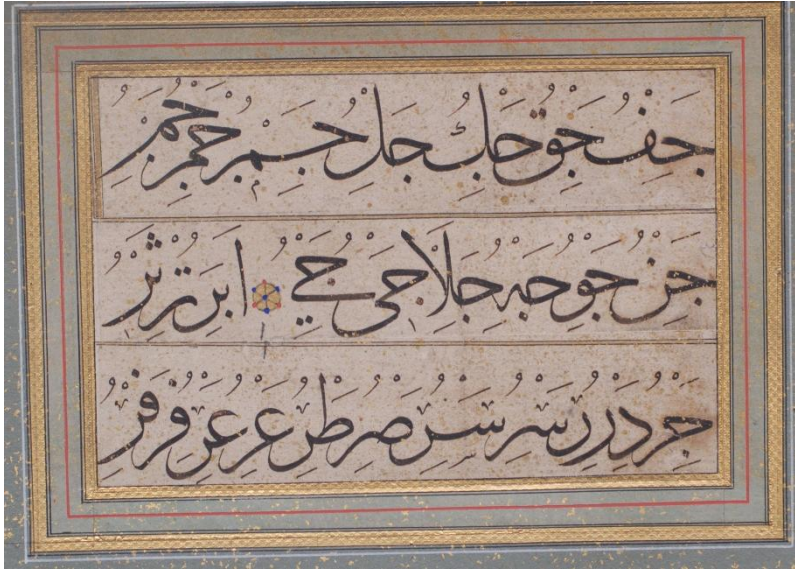 جف جق جك جل جم جمر جمر
جن جو جه جلا جى جي ا بر تر ثر
جر در رر سر سر صر طر عر عر فر قر